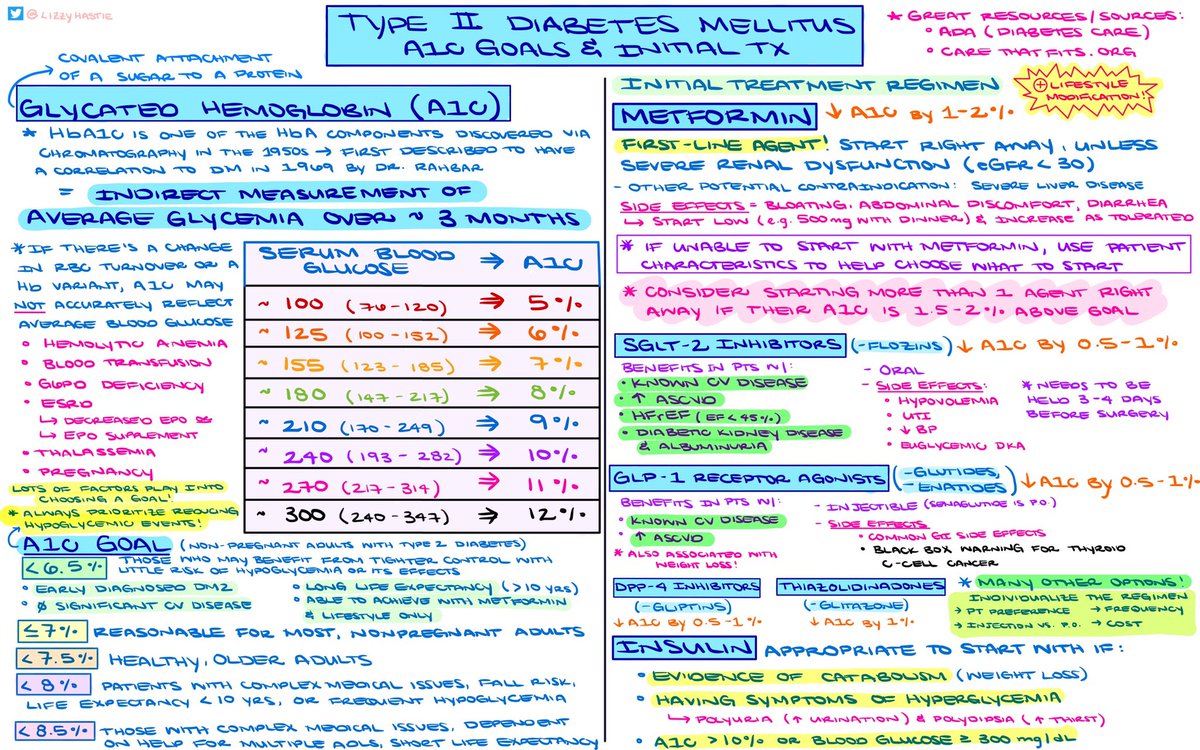 @LIZZYHASTIE
TYPE II DIABETES MELLITUS
A1C GOALS & INITIAL TX
* GREAT RESOURCES/SOURCES:
• ADA (DIABETES CARE)
• CARE THAT FITS.ORG
COVALENT ATTACHMENT
OF A SUGAR TO A PROTEIN
GLYCATED HEMOGLOBIN (A1C)
* HbA1C IS ONE OF THE HbA COMPONENTS DISCOVERED VIA
CHROMATOGRAPHY IN THE 1950s → FIRST DESCRIBED TO HAVE
A CORRELATION TO DM IN 1969 BY DR. RAHBAR
= INDIRECT MEASUREMENT OF
AVERAGE GLYCEMIA OVER ~ 3 MONTHS
* IF THERE'S A CHANGE
IN RBC TURNOVER OR A
Hb VARIANT, A1C MAY
NOT ACCURATELY REFLECT
AVERAGE BLOOD GLUCOSE
• HEMOLYTIC ANEMIA
• BLOOD TRANSFUSION
• G6PD DEFICIENCY
• ESRD
↳ DECREASED EPO &
↳ EPO SUPPLEMENT
• THALASSEMIA
• PREGNANCY
SERUM BLOOD GLUCOSE ⇒ A1C
~ 100 (76-120) ⇒ 5%
~ 125 (100-152) ⇒ 6%
~ 155 (123-185) ⇒ 7%
~ 180 (147-217) ⇒ 8%
~ 210 (170-249) ⇒ 9%
~ 240 (193-282) ⇒ 10%
~ 270 (217-314) ⇒ 11%
~ 300 (240-347) ⇒ 12%
LOTS OF FACTORS PLAY INTO
CHOOSING A GOAL!
* ALWAYS PRIORITIZE REDUCING
HYPOGLYCEMIC EVENTS!
A1C GOAL (NON-PREGNANT ADULTS WITH TYPE 2 DIABETES)
<6.5% THOSE WHO MAY BENEFIT FROM TIGHTER CONTROL WITH
LITTLE RISK OF HYPOGLYCEMIA OR ITS EFFECTS
• EARLY DIAGNOSED DM2
• Ø SIGNIFICANT CV DISEASE
• LONG LIFE EXPECTANCY (>10 YRS)
• ABLE TO ACHIEVE WITH METFORMIN
& LIFESTYLE ONLY
≤7% REASONABLE FOR MOST, NONPREGNANT ADULTS
<7.5% HEALTHY, OLDER ADULTS
<8% PATIENTS WITH COMPLEX MEDICAL ISSUES, FALL RISK,
LIFE EXPECTANCY <10 YRS, OR FREQUENT HYPOGLYCEMIA
<8.5% THOSE WITH COMPLEX MEDICAL ISSUES, DEPENDENT
ON HELP FOR MULTIPLE ADLS, SHORT LIFE EXPECTANCY
INITIAL TREATMENT REGIMEN
⊕ LIFESTYLE
MODIFICATION!
METFORMIN ↓ A1C BY 1-2%
FIRST-LINE AGENT! START RIGHT AWAY, UNLESS
SEVERE RENAL DYSFUNCTION (eGFR<30)
- OTHER POTENTIAL CONTRAINDICATION: SEVERE LIVER DISEASE
SIDE EFFECTS = BLOATING, ABDOMINAL DISCOMFORT, DIARRHEA
↳ START LOW (e.g. 500mg WITH DINNER) & INCREASE AS TOLERATED
* IF UNABLE TO START WITH METFORMIN, USE PATIENT
CHARACTERISTICS TO HELP CHOOSE WHAT TO START
* CONSIDER STARTING MORE THAN 1 AGENT RIGHT
AWAY IF THEIR A1C IS 1.5-2% ABOVE GOAL
SGLT-2 INHIBITORS (-FLOZINS) ↓ A1C BY 0.5-1%
BENEFITS IN PTS W/:
• KNOWN CV DISEASE
• ↑ ASCVD
• HFrEF (EF<45%)
• DIABETIC KIDNEY DISEASE
& ALBUMINURIA
- ORAL
- SIDE EFFECTS:
• HYPOVOLEMIA
• UTI
• ↓ BP
• EUGLYCEMIC DKA
* NEEDS TO BE
HELD 3-4 DAYS
BEFORE SURGERY
GLP-1 RECEPTOR AGONISTS (-GLUTIDES, -ENATIDES) ↓ A1C BY 0.5-1%
BENEFITS IN PTS W/:
• KNOWN CV DISEASE
• ↑ ASCVD
* ALSO ASSOCIATED WITH
WEIGHT LOSS!
- INJECTIBLE (SEMAGLUTIDE IS P.O.)
- SIDE EFFECTS
• COMMON GI SIDE EFFECTS
• BLACK BOX WARNING FOR THYROID
C-CELL CANCER
DPP-4 INHIBITORS
(-GLIPTINS)
↓ A1C BY 0.5-1%
THIAZOLIDINADONES
(-GLITAZONE)
↓ A1C BY 1%
* MANY OTHER OPTIONS!
INDIVIDUALIZE THE REGIMEN
→ PT PREFERENCE → FREQUENCY
→ INJECTION VS. P.O. → COST
INSULIN APPROPRIATE TO START WITH IF:
• EVIDENCE OF CATABOLISM (WEIGHT LOSS)
• HAVING SYMPTOMS OF HYPERGLYCEMIA
↳ POLYURIA (↑ URINATION) & POLYDIPSIA (↑ THIRST)
• A1C >10% OR BLOOD GLUCOSE ≥ 300 mg/dL